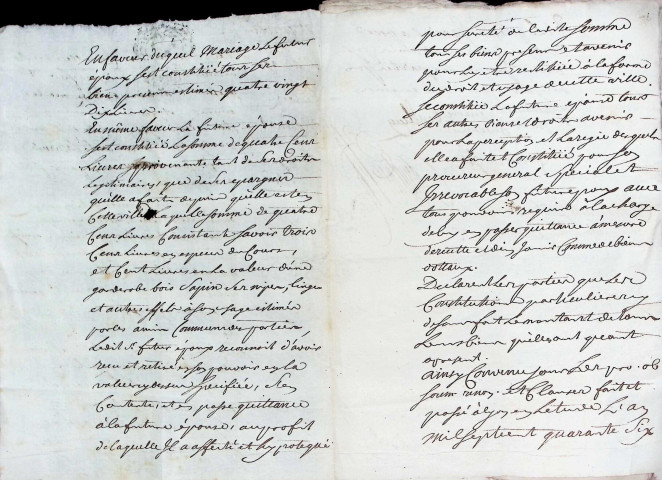 En faveur duquel Mariage Le futur
époux s'est constitué tous ses
biens estimés quatre vingt
En même faveur La future épouse
s'est constituée La somme de quatre Cent
Livres provenante tant de ses droits
Legitimaires que de ses epargnes
quelle a faits depuis quelle est en
Cette ville La quelle somme de quatre
Cent Livres Consistant savoir trois
Cent Livres en especes de Cours,
et Cent Livres en La valeur d'une
garderobe bois sapin ses nipes, Linges
et autres effets à son usage estimés
par les amis Communs des parties,
Ledit Sr futur époux reconnoit d'avoir
reçu et retiré en son pouvoir en La
valeur cy dessus specifiée, s'en
Contente, et en passe quittance
à La future épouse, au profit
de Laquelle Il a affecté et hypotequé
pour sureté de Ladite somme
tous ses biens presents et avenir
pour luy etre restituée à La forme
du droit et usage de cette ville.
Se constitue La future épouse tous
ses autres biens et droits avenir
pour La perception et La regie desquels
elle a fait et Constitué pour son
procureur general special et
Irrevocable son futur époux avec
tous pouvoirs requis à La charge
de Luy en passer quittance à mesure
de dotaux.
Declarent Les parties que Les
Constitutions particulieres
de sont Le montant de tous
Leurs biens quels ayent quant
a present.
Ainsy Convenu
soum. renon. Et Clauses fait et
passé à Lyon en L'etude L'an
Mil sept cent quarante six